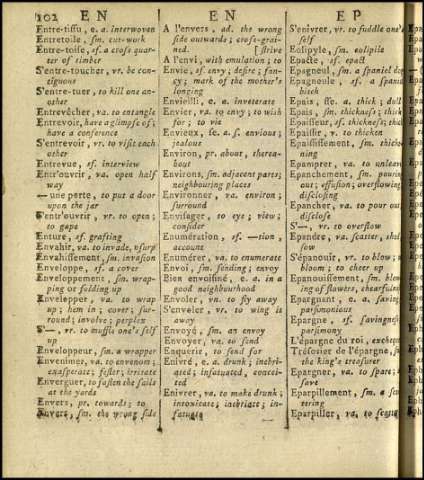 102 EN EN EP
Entre-tissu, e. a. interwoven
Entretoile, sm. cut-work
Entre-toise, sf. a cross quar-
ter of timber
S'entre-toucher, vr. be con-
tiguous
S'entre-tuer, to kill one an-
other
Entrevêcher, va. to entangle
Entrevoir, have a glimpse of;
have a conference
S'entrevoir, vr. to visit each
other
Entrevue, sf. interview
Entr'ouvrir, va. open half
way
— une porte, to put a door
upon the jar
S'entr'ouvrir, vr. to open;
to gape
Enture, sf. grafting
Envahir, va. to invade, usurp
Envahissement, sm. invasion
Enveloppe, sf. a cover
Enveloppement, sm. wrap-
ping or folding up
Envelopper, va. to wrap
up; hem in; cover; sur-
round; involve; perplex
S'—, vr. to muffle one's self
up
Enveloppeur, sm. a wrapper
Envenimer, va. to envenom;
exasperate; fester; irritate
Enverguer, to fasten the sails
at the yards
Envers, pr. towards; to
Envers, sm. the wrong side
A l'envers, ad. the wrong
side outwards; cross-grain-
ned. [strive
A l'envi, with emulation; to
Envie, sf. envy; desire; fan-
cy; mark of the mother's
longing
Envieilli, e. a. inveterate
Envier, va. to envy; to wish
for; to vie
Envieux, se. a. s. envious;
jealous
Environ, pr. about, therea-
bout
Environs, sm. adjacent parts;
neighbouring places
Environner, va. environ;
surround
Envisager, to eye; view;
consider
Enumération, sf. —tion,
account
Enumérer, va. to enumerate
Envoi, sm. sending; envoy
Bien envoisiné, e. a. in a
good neighbourhood
Envoler, vn. to fly away
S'envoler, vr. to wing is
away
Envoyé, sm. an envoy
Envoyer, va. to send
Enquerir, to send for
Enivré, e. a. drunk; inebri-
ated; infatuated, conceit-
ed
Enivrer, va. to make drunk;
intoxicate; inebriate; in-
fatuate
S'enivrer, vr. to fuddle one's
self
Eolipyle, sm. eolipile
Epacte, sf. epact
Epagneul, sm. a spaniel dog
Epagneule, sf. a spaniel
bitch
Epais, sse. a. thick; dull
Epais, sm. thickness; thick
Epaisseur, sf. thickness; th
Epaissir, v. to thicken
Epaississement, sm. thicke-
ning
Epamprer, va. to unleave
Epanchement, sm. pouring
out; effusion; overflowing
disclosing
Epancher, va. to pour out
disclose
S'—, vr. to overflow
Epandre, va. scatter, shed
low
S'épanouir, vr. to blow;
bloom; to cheer up
Epanouissement, sm. blow-
ing of flowers, chearfulness
Epargnant, e. a. saving
parsimonious
Epargne, sf. savingness
parsimony
L'épargne du roi, exchequer
Trésorier de l'épargne,
the king's treasurer
Epargner, va. to spare;
save
Eparpillement, sm. a scat-
tering
Eparpiller, va. to scatter